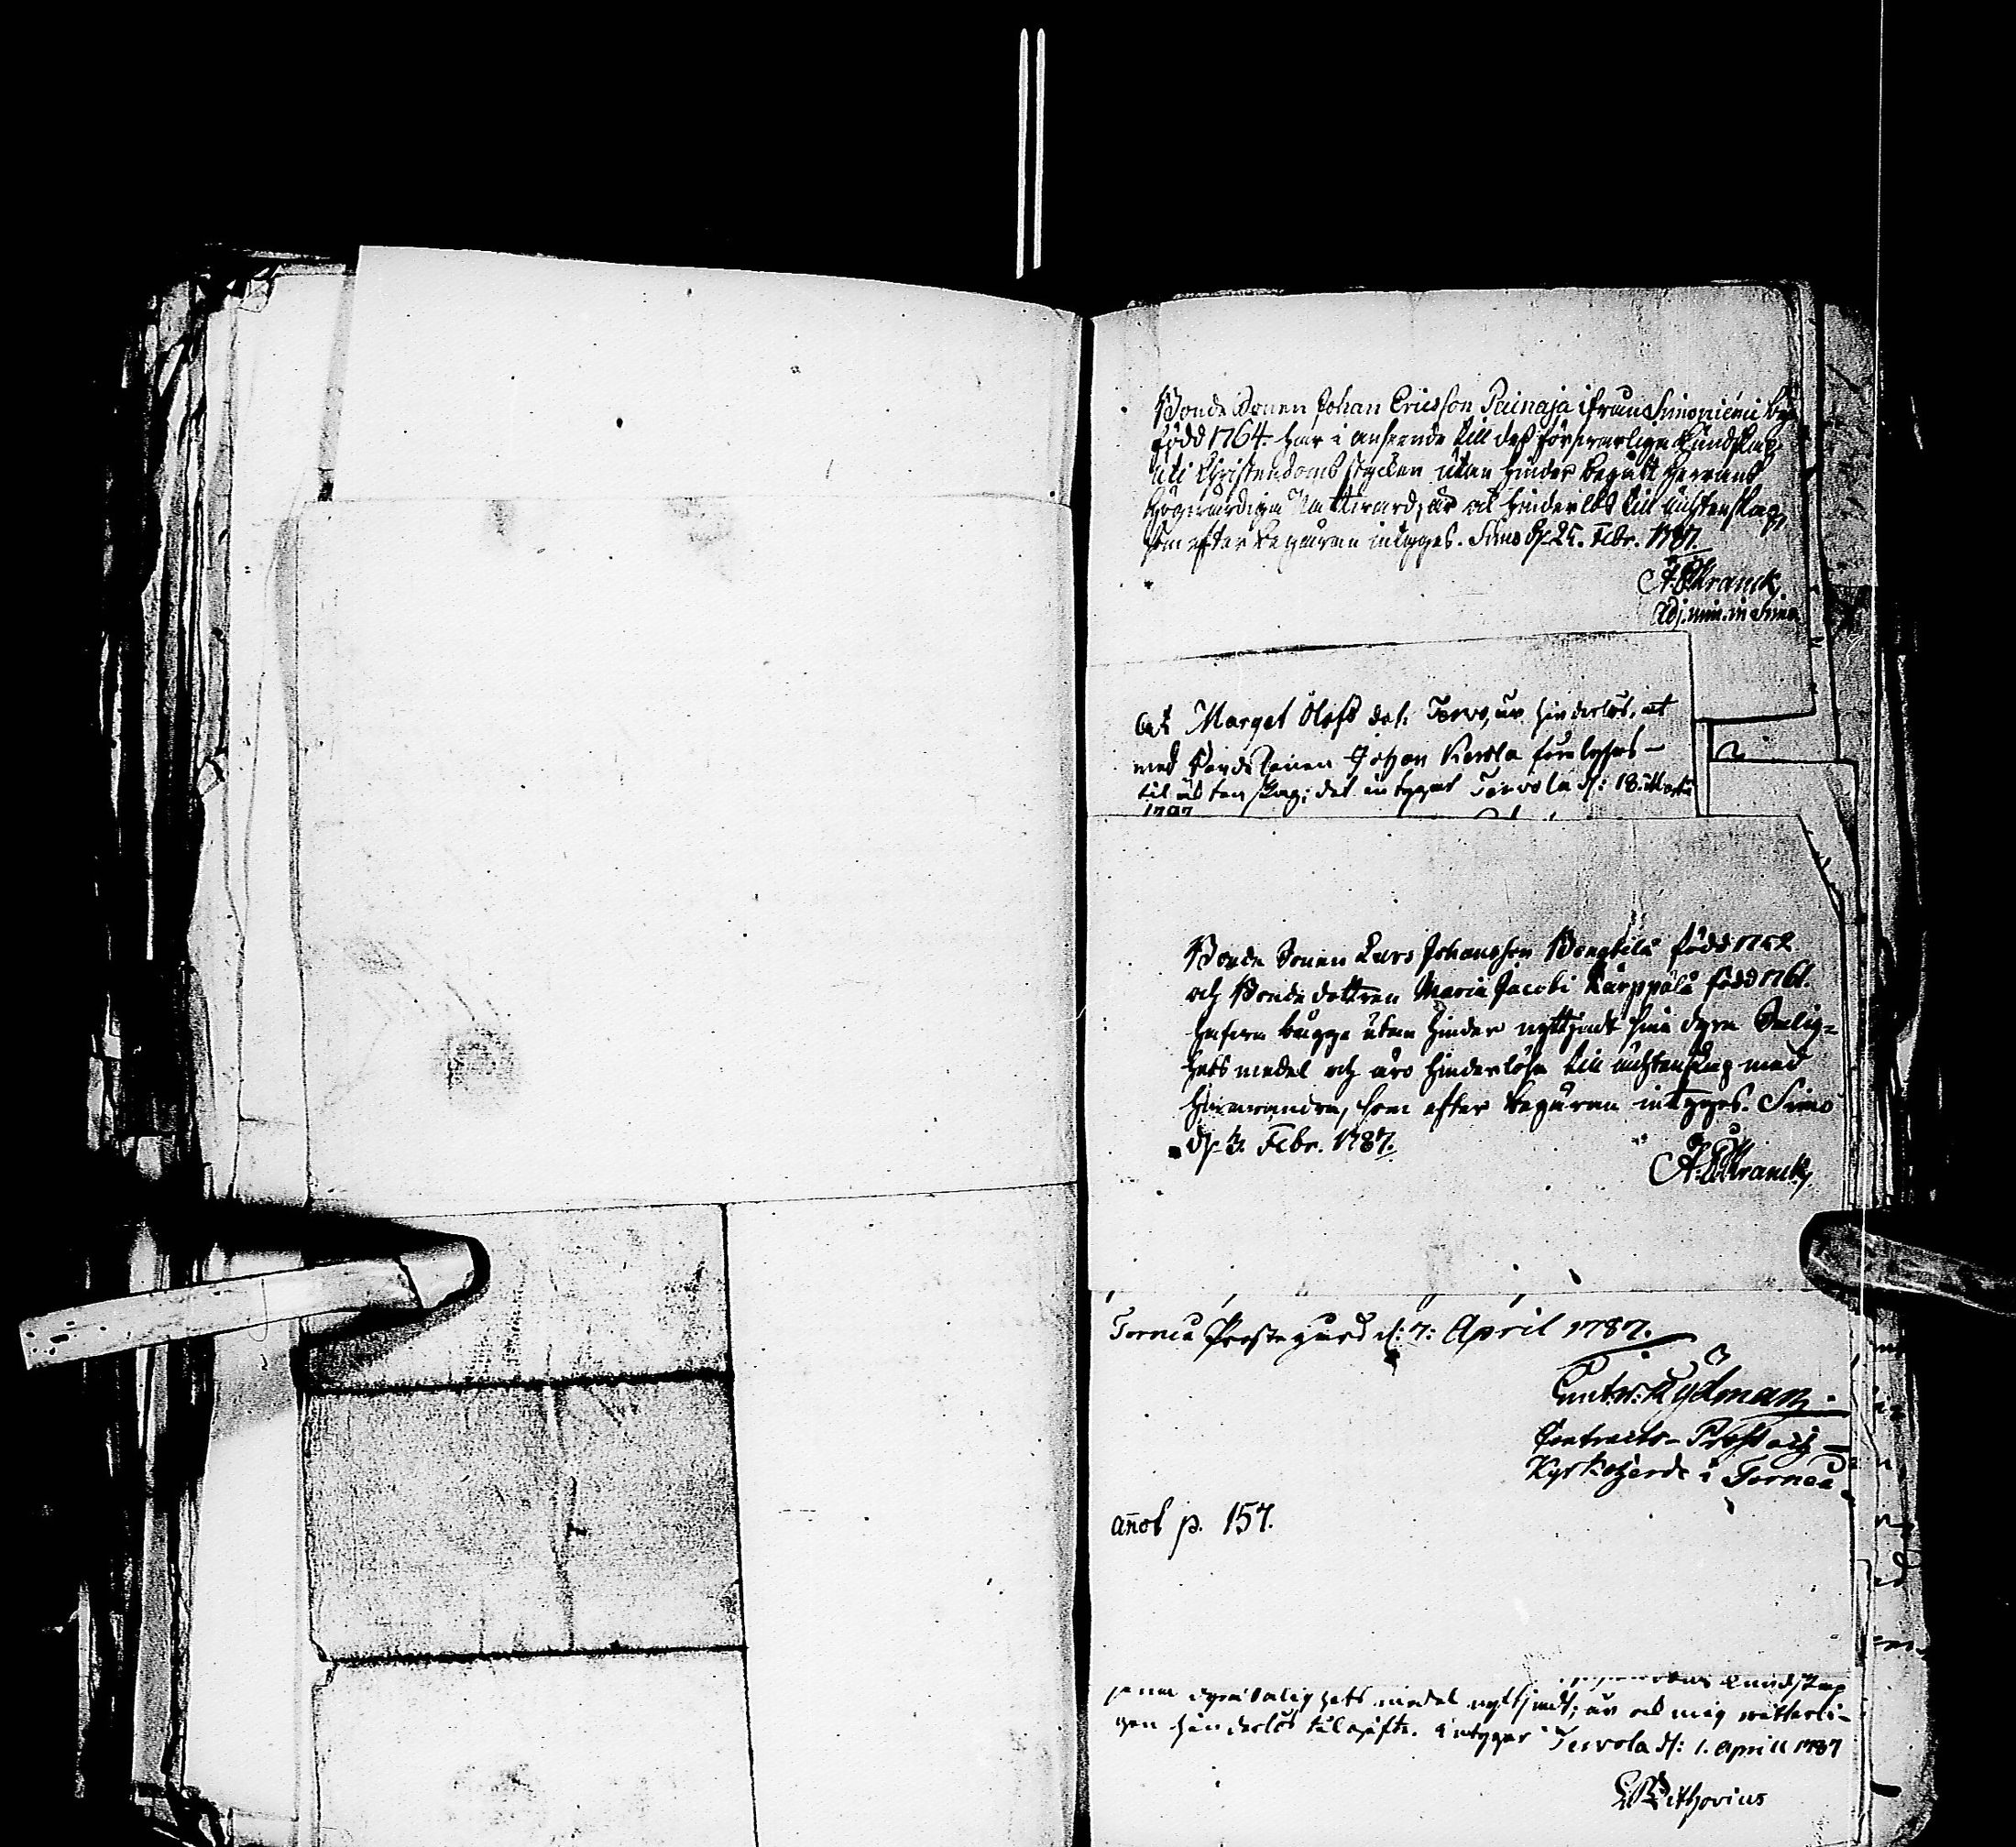 Bonde Sonen Johan Ericsson Painaja ifrån Simoniemi by
född 1764. har i anseende till dess försvarliga kundskap
uti Christendoms stycken utan hinder begått Herrans
Högvärdiga Nattvard, är ock hinderlös till ächtenskap,
som efter begäran intyges. Simo d. 25. Febr. 1787.
Kranck
Adj. min. in Simo
At Marget Olofs dot: Tervo, är hinderlös, at
med Bonde Sonen Johan Kerola
til äktenskap; det intygar Tervola d: 18. Martii
1787
Bonde Sonen Lars Johansson född 1752
och Bonde dottren Maria Jacobi Karppala född 1761.
hafva bägge utan hinder nyttjadt sina dyra Salig-
hets medel och äro hinderlösa till ächtenskap med
hvarandra, som efter begäran intyges. Simo
d. 3. Febr. 1787.
Kranck
Torneå Prostegård d: 7: April 1787.
Rydman
Contracts-Prost och
Kyrkoherde i Torneå
anot p. 157.
kundskap
sina dyra Salighets medel nyttjadt; är ock mig vitterli-
gen hinderlös til gifte. intygar Tervola d: 1. April 1787